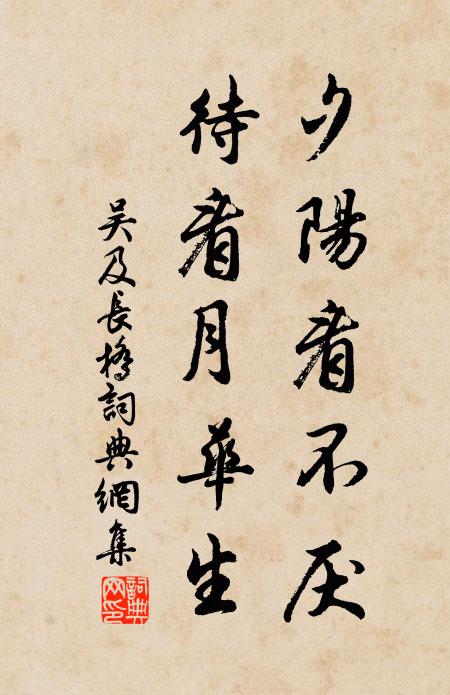 夕陽看不厌
待看月華生
吴及長橋詞典網集
詞典網印